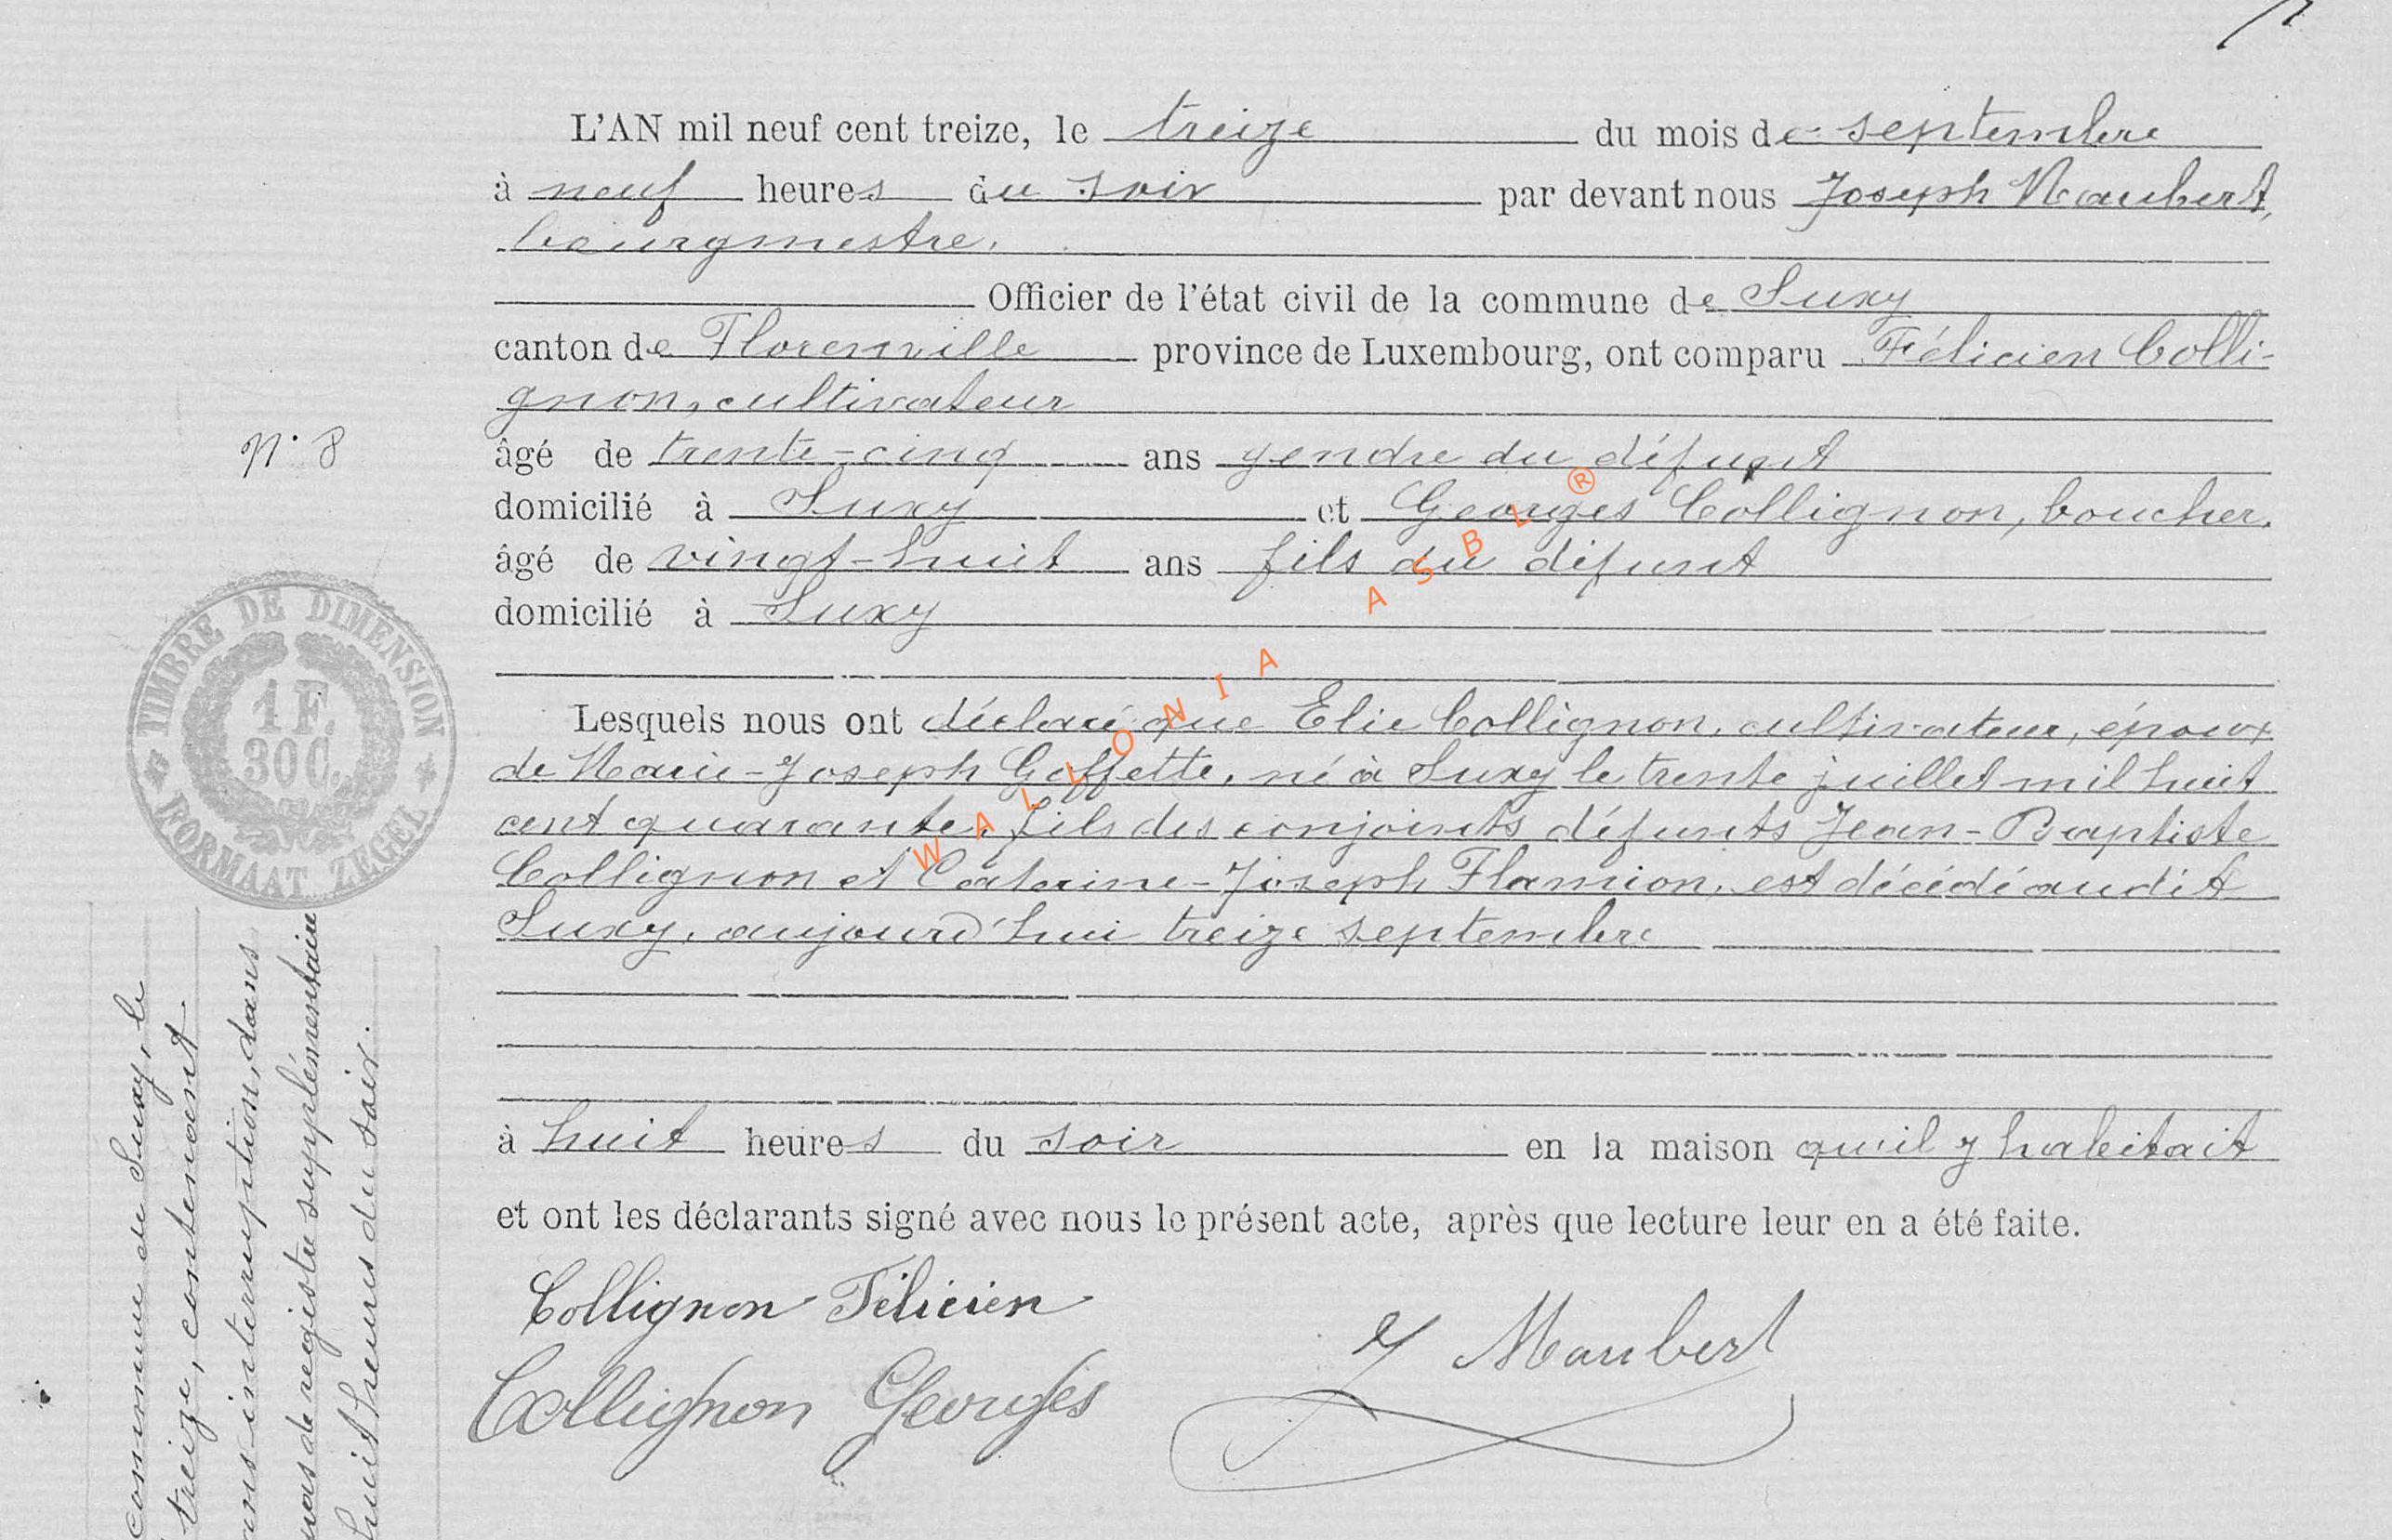 L'AN mil neuf cent treize, le treize du mois de septembre
à neuf heures du soir par devant nous Joseph Maubert,
bourgmestre.
Officier de l'état civil de la commune de Suxy
canton de Florenville province de Luxembourg, ont comparu Félicien Colli-
gnon, cultivateur
N° 8
âgé de trente-cinq ans gendre du défunt
domicilié à Suxy et Georges Collignon, boucher,
âgé de vingt-huit ans fils du défunt
domicilié à Suxy
TIMBRE DE DIMENSION
1 F.
30 C.
FORMAAT ZEGEL
Lesquels nous ont déclaré que Elie Collignon, cultivateur, époux
de Marie-Joseph Goffette, né à Suxy le trente juillet mil huit
cent quarante, fils des conjoints défunts Jean-Baptiste
Collignon et Caterine-Joseph Flamion, est décédé audit
Suxy, aujourd'hui treize septembre
à huit heures du soir en la maison qu'il y habitait
et ont les déclarants signé avec nous le présent acte, après que lecture leur en a été faite.
Collignon Félicien
J Maubert
Collignon Georges
commune de Suxy, le
treize, contenant
interruption, dans
de registre supplémentaire
huit heures du soir.
WALLONIA ASBL ®